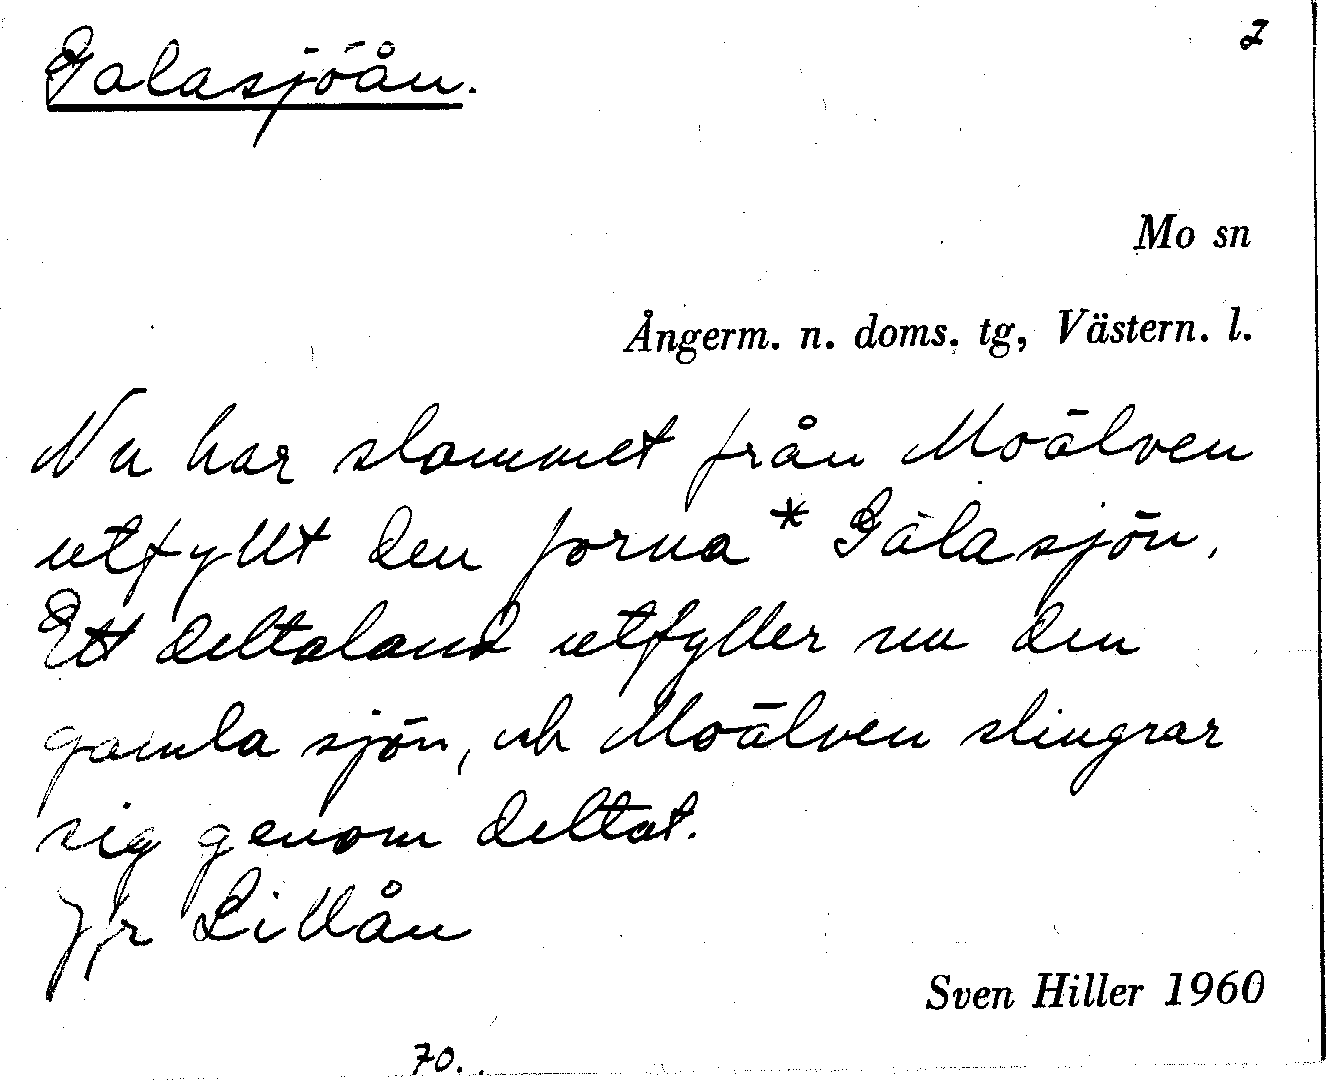 2
Galasjöån.
Mo sn
Ångerm. n. doms. tg, Västern. l.
Nu har slammet från Moälven
utfyllt den forna * Gålasjön.
Ett deltaland utfyller nu den
gamla sjön, och Moälven slingrar
sig genom deltat.
Jfr Lillån
Sven Hiller 1960
70.